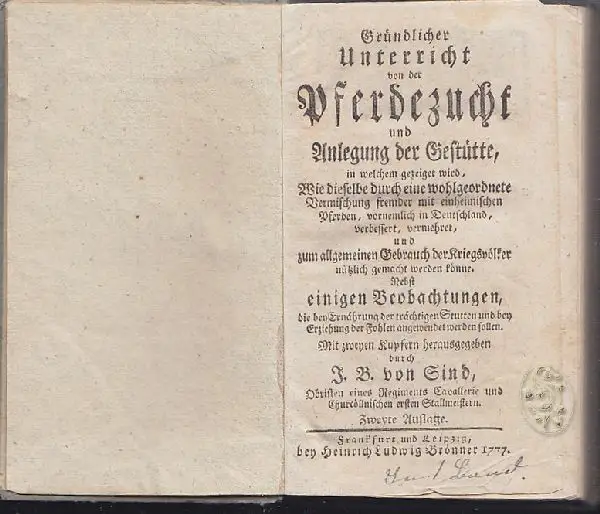 Gründlicher
Unterricht
von der
Pferdezucht
und
Anlegung der Gestütte,
in welchem gezeiget wird,
Wie dieselbe durch eine wohlgeordnete
Vermischung fremder mit einheimischen
Pferden, vornemlich in Deutschland,
verbessert, vermehret,
und
zum allgemeinen Gebrauch der Kriegsvölker
nützlich gemacht werden könne.
Nebst
einigen Beobachtungen,
die bey Ernährung der trächtigen Stutten und bey
Erziehung der Fohlen angewendet werden sollen.
Mit zweyen Kupfern herausgegeben
durch
J. B. von Sind,
Obristen eines Regiments Cavallerie und
Churcöllnischen ersten Stallmeistern.
Zweyte Auflage.
Frankfurt und Leipzig,
bey Heinrich Ludwig Brönner 1777.